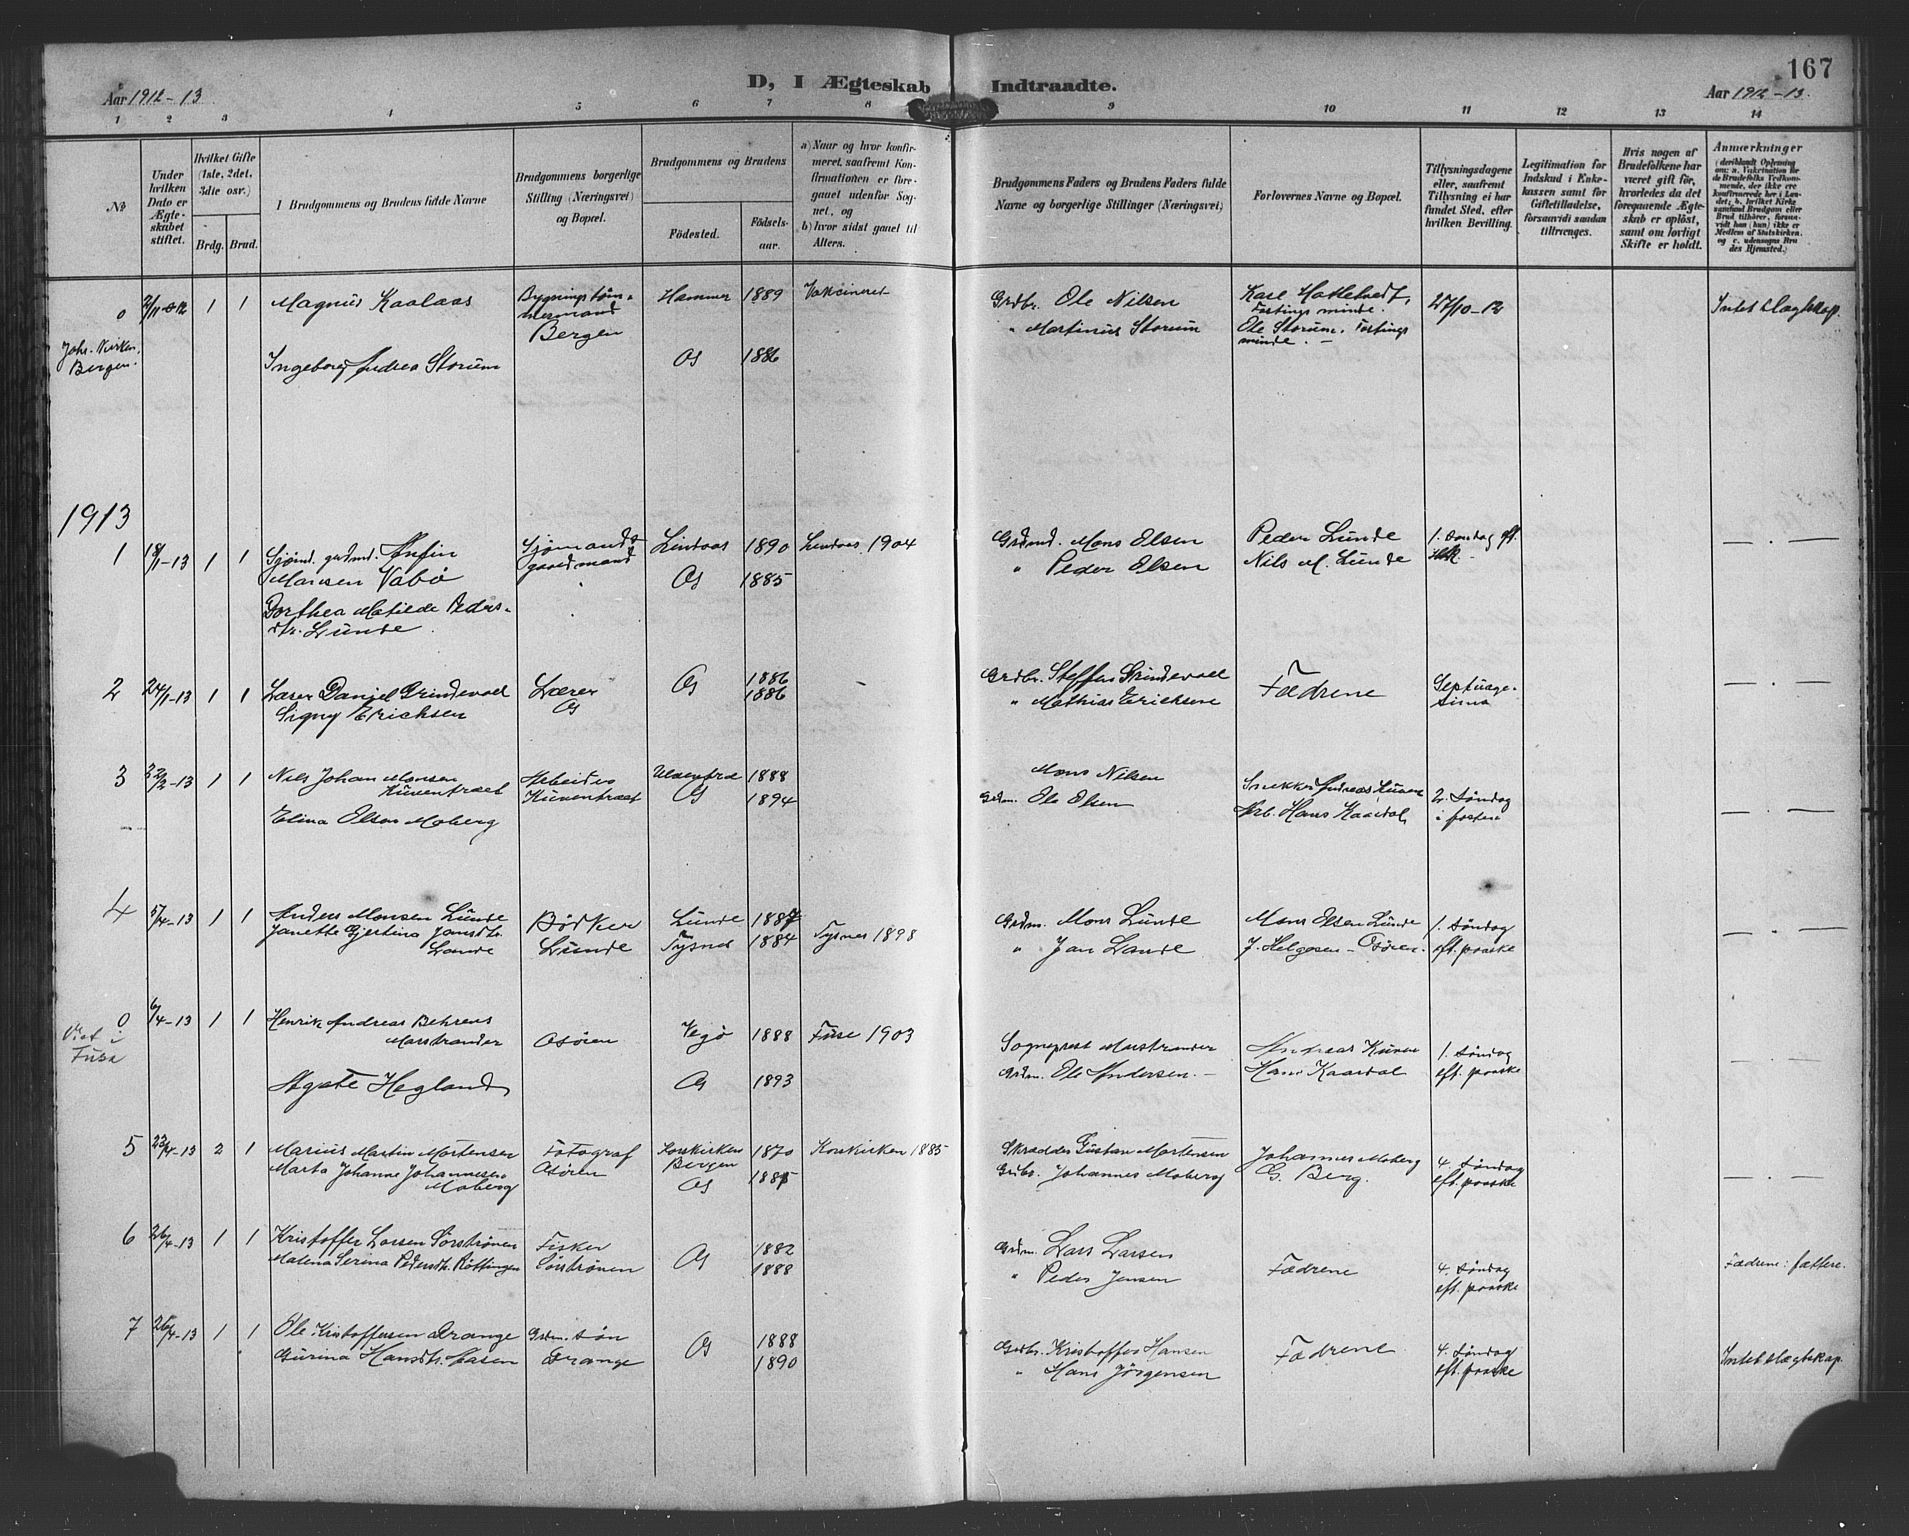 167
D, I Ægteskab Indtraadte.
Aar 1912-13
Aar 1912-13.
1 2 3 4 5 6 7 8 9 10 11 12 13 14
No
Under hvilken Dato er Ægteskabet stiftet.
Hvilket Gifte (1ste, 2det, 3die osv.)
Brdg. Brud.
I Brudgommens og Brudens fulde Navne
Brudgommens borgerlige Stilling (Næringsvei) og Bopæl.
Brudgommens og Brudens
Fødested.
Fødselsaar.
a) Naar og hvor konfirmeret, saafremt Konfirmationen er foregaaet udenfor Sognet, og
b) hvor sidst gaaet til Alters.
Brudgommens Faders og Brudens Faders fulde Navne og borgerlige Stillinger (Næringsvei)
Forlovernes Navne og Bopæl.
Tillysningsdagene eller, saafremt Tillysning ei har fundet Sted, efter hvilken Bevilling.
Legitimation for Indskud i Enkekassen samt for Giftetilladelse, forsaavidt saadan tiltrænges.
Hvis nogen af Brudefolkene har været gift før, hvorledes da det foregaaende Ægteskab er opløst, samt om lovligt Skifte er holdt.
Anmærkninger
0 2/11-12 1 1 Magnus Kaalaas Bygningstømmermand Bergen Hammer 1889 Vakcineret Grdbr. Ole Nilsen Karl Hatletvedt, Fostings minde. 27/10-12 Intet slægtskap.
" Martinus Storum Ole Storum, Fostings minde. -
Johs. Kirken, Bergen.
Ingeborg Andrea Storum Os 1886
1913
1 18/1-13 1 1 Sjömd. grdmd. Anfin Sjømand & gaardmand Lindaas 1890 Lindaas 1904 Grdmd. Mons Olsen Peder Lunde 1. søndag eft.
Monsen Vabø Os 1885 " Peder Olsen Nils M. Lunde
Dorthea Matilde Pedersdtr. Lunde
2 24/1-13 1 1 Lærer Daniel Grindevoll Lærer Os 1886 Grdbr. Steffen Grindevoll Fædrene Septuagesima
Signy Erichsen Os 1886 " Mathias Erichsen
3 22/2-13 1 1 Nils Johan Monsen Kuventræet Arbeider Kuventræet 1888 Mons Nilsen Snekker Andreas Kuven 2. søndag i fasten
Elina Olsen Moberg Os 1894 Grdm. Ole Olsen Hans Kaardal
4 5/4-13 1 1 Anders Monsen Lunde Bødker Lunde 1887 Grdm. Mons Lunde Mons Olsen Lunde 1. søndag
Janette Gjertina Jansdtr. Lande Lunde Tysnes 1884 Tysnes 1898 " Jan Lande J. Helgesen - Osøren. eft. paaske
0 6/4-13 1 1 Henrik Andreas Behrens Marstrander Osøren Vegø 1888 Fuse 1903 Sogneprest Marstrander Andreas Kuven 1. søndag
Viet i Fusa
Agate Hegland Os 1893 Grdm. Ole Andersen. - Hans Kaardal eft. paaske
5 23/4-13 2 1 Marius Martin Mortensen Fotograf Korskirken Bergen 1870 Korskirken 1885 Skrædder Gustav Mortensen Johannes Moberg 4. søndag
Marta Johanne Johannesen Moberg Osøren Os Grdbr. Johannes Moberg G. Berg. eft. paaske
6 26/4-13 1 1 Kristoffer Larsen Sørstrønen Fisker Os 1882 Grdm. Lars Larsen Fædrene 4. søndag Fædrene: fættere.
Malena Serina Pedersdtr. Røttingen Sørstrønen 1888 " Peder Jensen eft. paaske
7 26/4-13 1 1 Ole Kristoffersen Drange Grdm. søn Os 1888 Grdbr. Kristoffer Hansen Fædrene 4. søndag Intet slægtskap.
Gurina Hansdtr. Aasen Drange 1890 " Hans Jørgensen eft. paaske